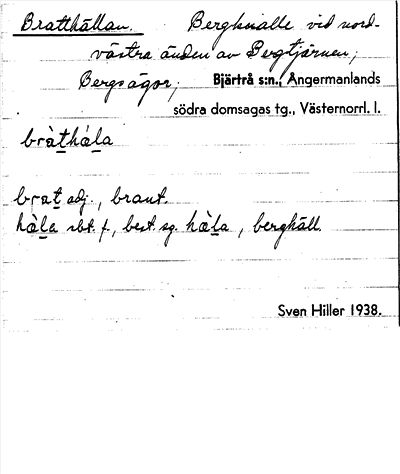 Bratthällan. Bergknalle vid nord-
västra änden av Bergtjärnen;
Bergsägor; Bjärtrå s:n., Ångermanlands
södra domsagas tg., Västernorrl. l.
bràt̲hál̲a
brat̲ adj., brant.
hàl̲a sbt. f., best. sg. hàl̲a, berghäll.
Sven Hiller 1938.